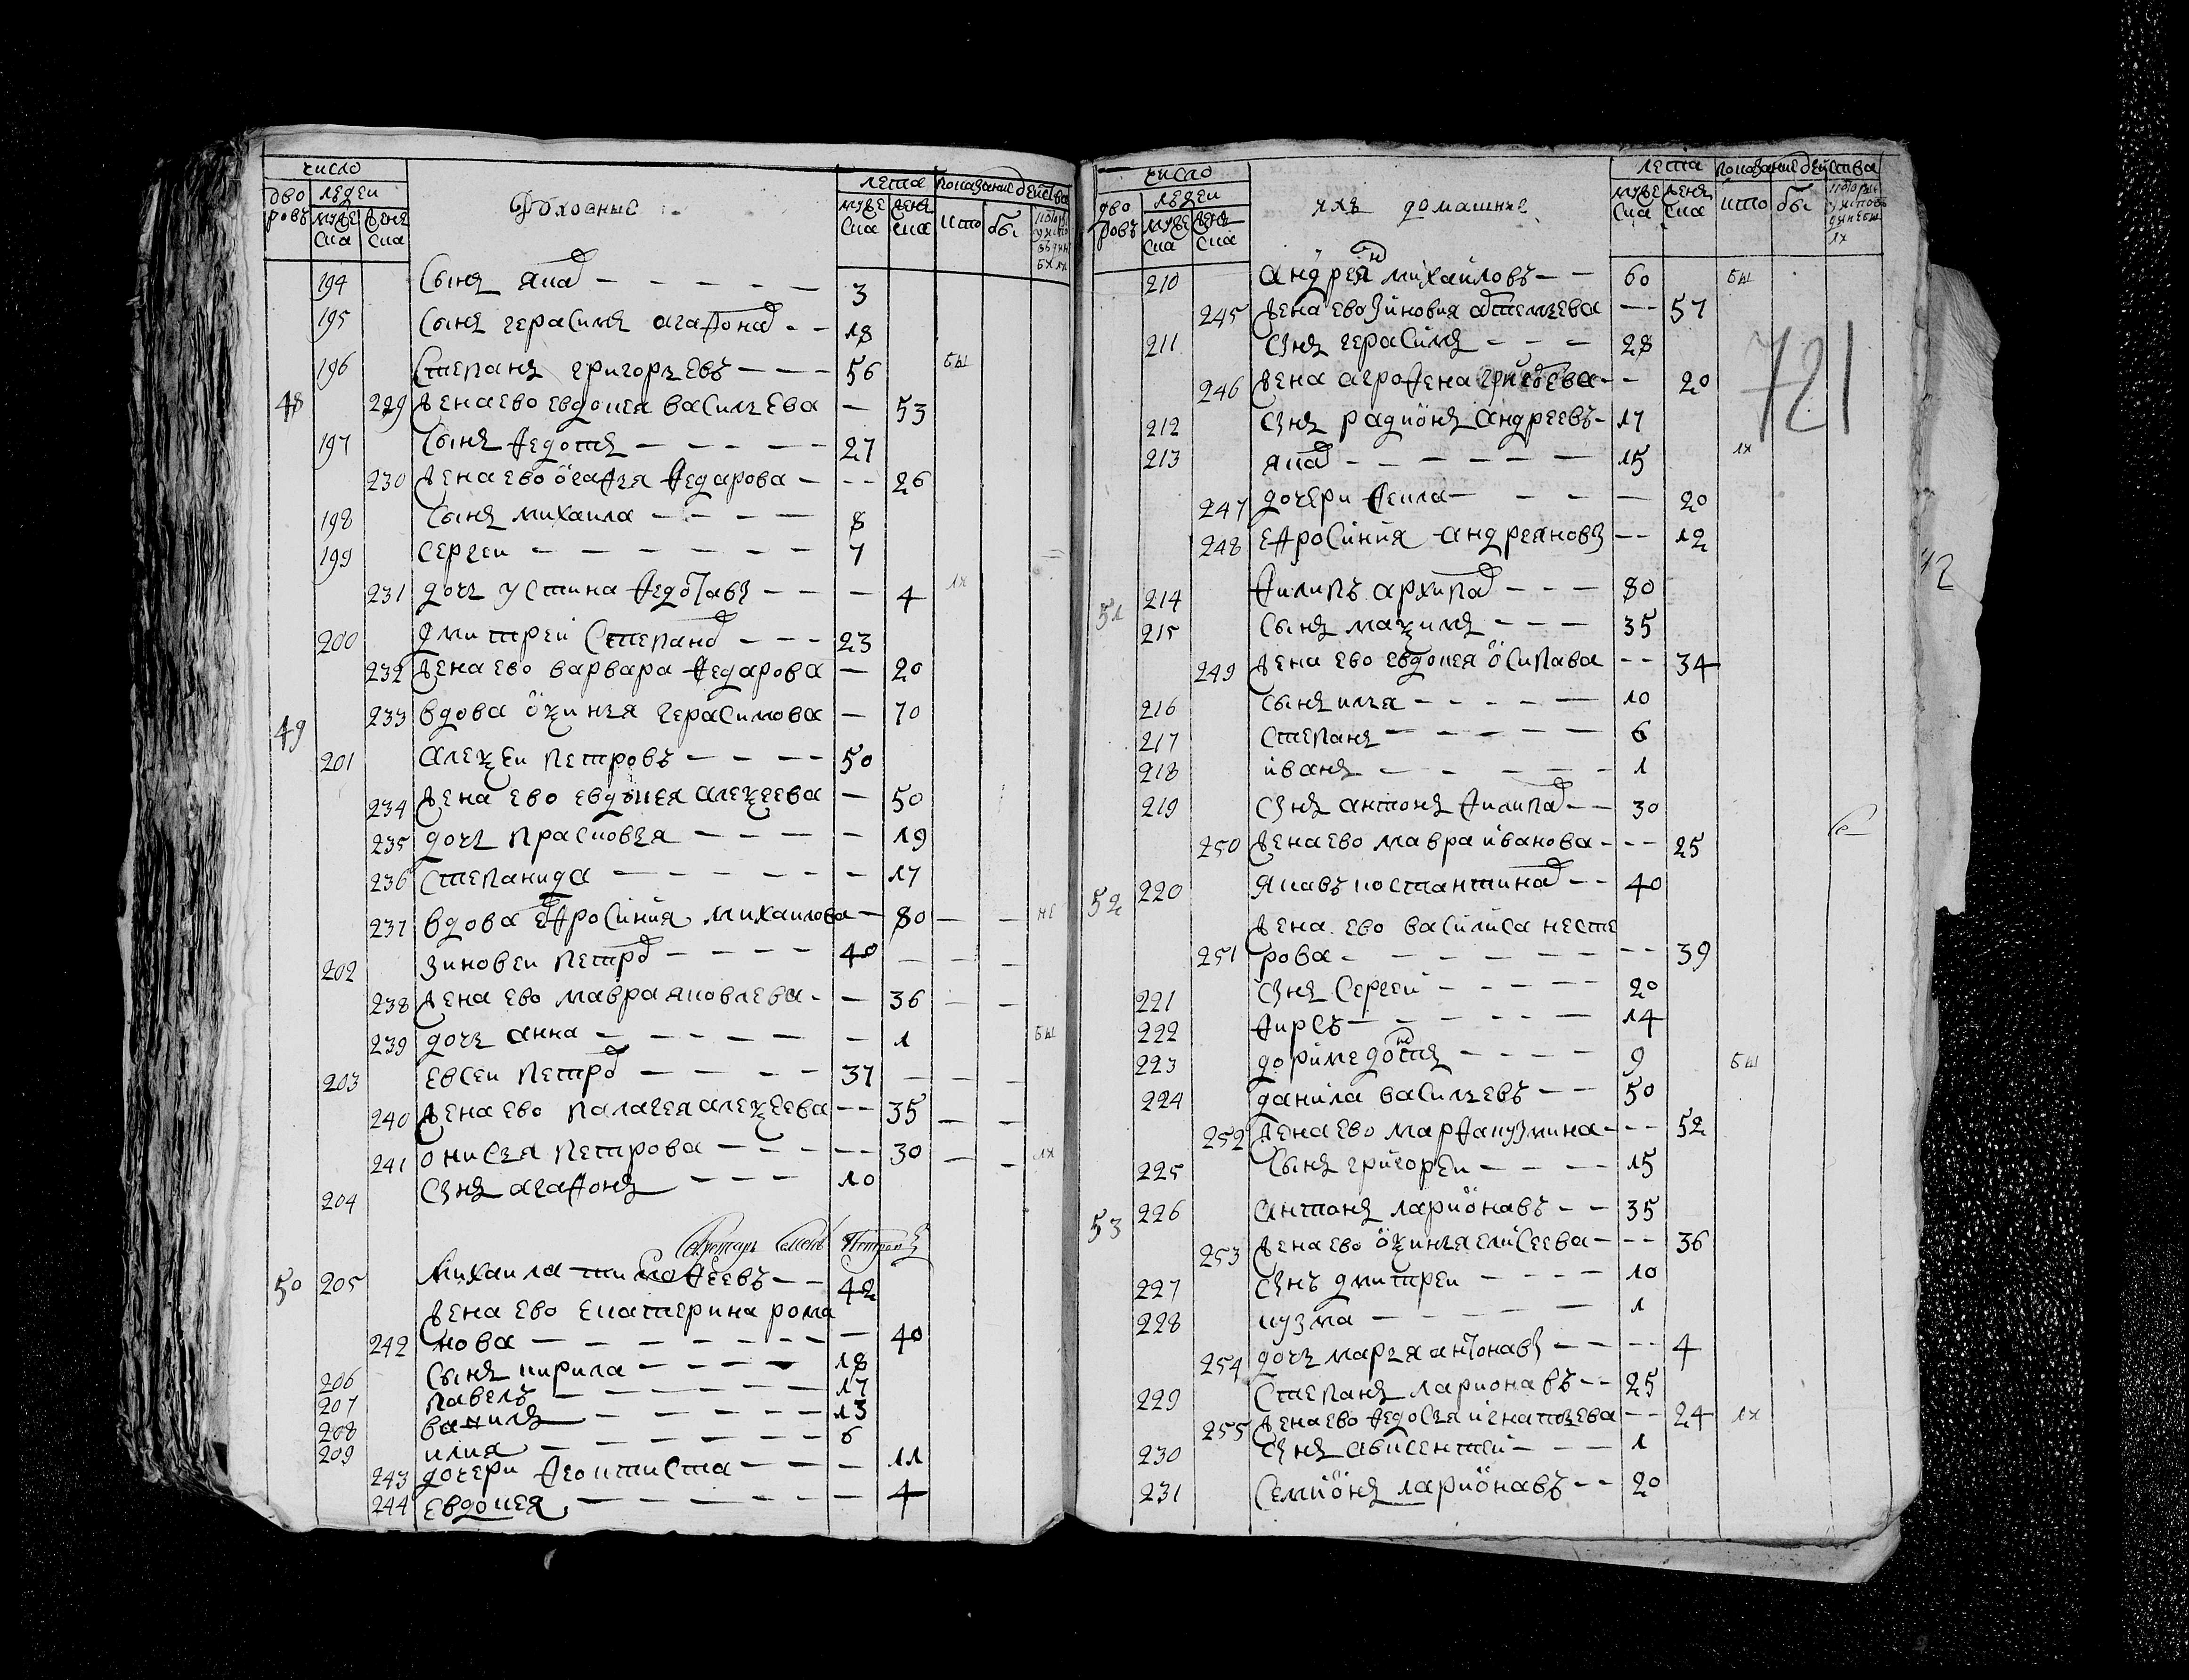 число
дво ровъ
людеи
муже ска
женс ска
Духовные
лета
муже ска
женс ска
показание действа
кто
бы
194 Сынъ яков 3
195 Сынъ герасимъ агафонов 18
196 Степанъ григорьевъ 56 бы
48 229 жена ево евдокея васильева 53
197 Сынъ федотъ 27
230 жена ево огафья федарова 26
198 Сынъ михаила 8
199 Сергеи 7
231 дочь устина федотавы 4
200 дмитреи Степанов 23
232 жена ево варвара федарова 20
49 233 вдова оксинья герасимова 70
201 алексеи петровъ 50
234 жена ево евдокея алексеева 50
235 дочь прасковья 19
236 Степанида 17
237 вдова ефросиния михаилова 80
202 зиновеи петров 40
238 жена ево мавра яковлева 36
239 дочь анна 1
203 евсеи петров 37
240 жена ево палагея алексеева 35
241 онисья петрова 30
204 Сынъ агафонъ 10
50 205 михаила тимофеевъ 42
жена ево екатерина рома
242 нова 40
206 Сынъ кирила 18
207 павелъ 17
208 13
209 илия 6
243 дочери феоктиста 11
244 евдокея 4
число
дво ровъ
людеи
муже ска
женс ска
ихъ домашние
лета
муже ска
женс ска
показание действа
кто
бы
210 андреян михаиловъ 60 бы
245 жена ево зиновия артемьева 57
211 Сынъ герасимъ 28
246 жена агрофена 20
721
212 Сынъ радионъ андреевъ 17
213 яков 15
247 дочери фекла 20
248 ефросиния андреяновы 12
51 214 филипъ архипов 80
215 Сынъ максимъ 35
249 жена ево евдокея осипава 34
216 Сынъ илья 10
217 Степанъ 6
218 иванъ 1
219 Сынъ антонъ филипов 30
250 жена ево мавра иванова 25
52 220 Яковъ костантинов 40
жена ево василиса несте
251 рова 39
221 Сынъ Сергеи 20
222 фирсъ 14
223 доримедонтъ 9 бы
224 данила васильевъ 50
252 жена ево марфа кузмина 52
225 Сынъ григореи 15
53 226 антонъ ларионавъ 35
253 жена ево оксинья елисеева 36
227 Сынъ дмитреи 10
228 кузма 1
254 дочь марья антонавы 4
229 Степанъ ларионавъ 25
255 жена ево федосья игнатьева 24
230 Сынъ авксентеи 1
231 Семионъ ларионавъ 20